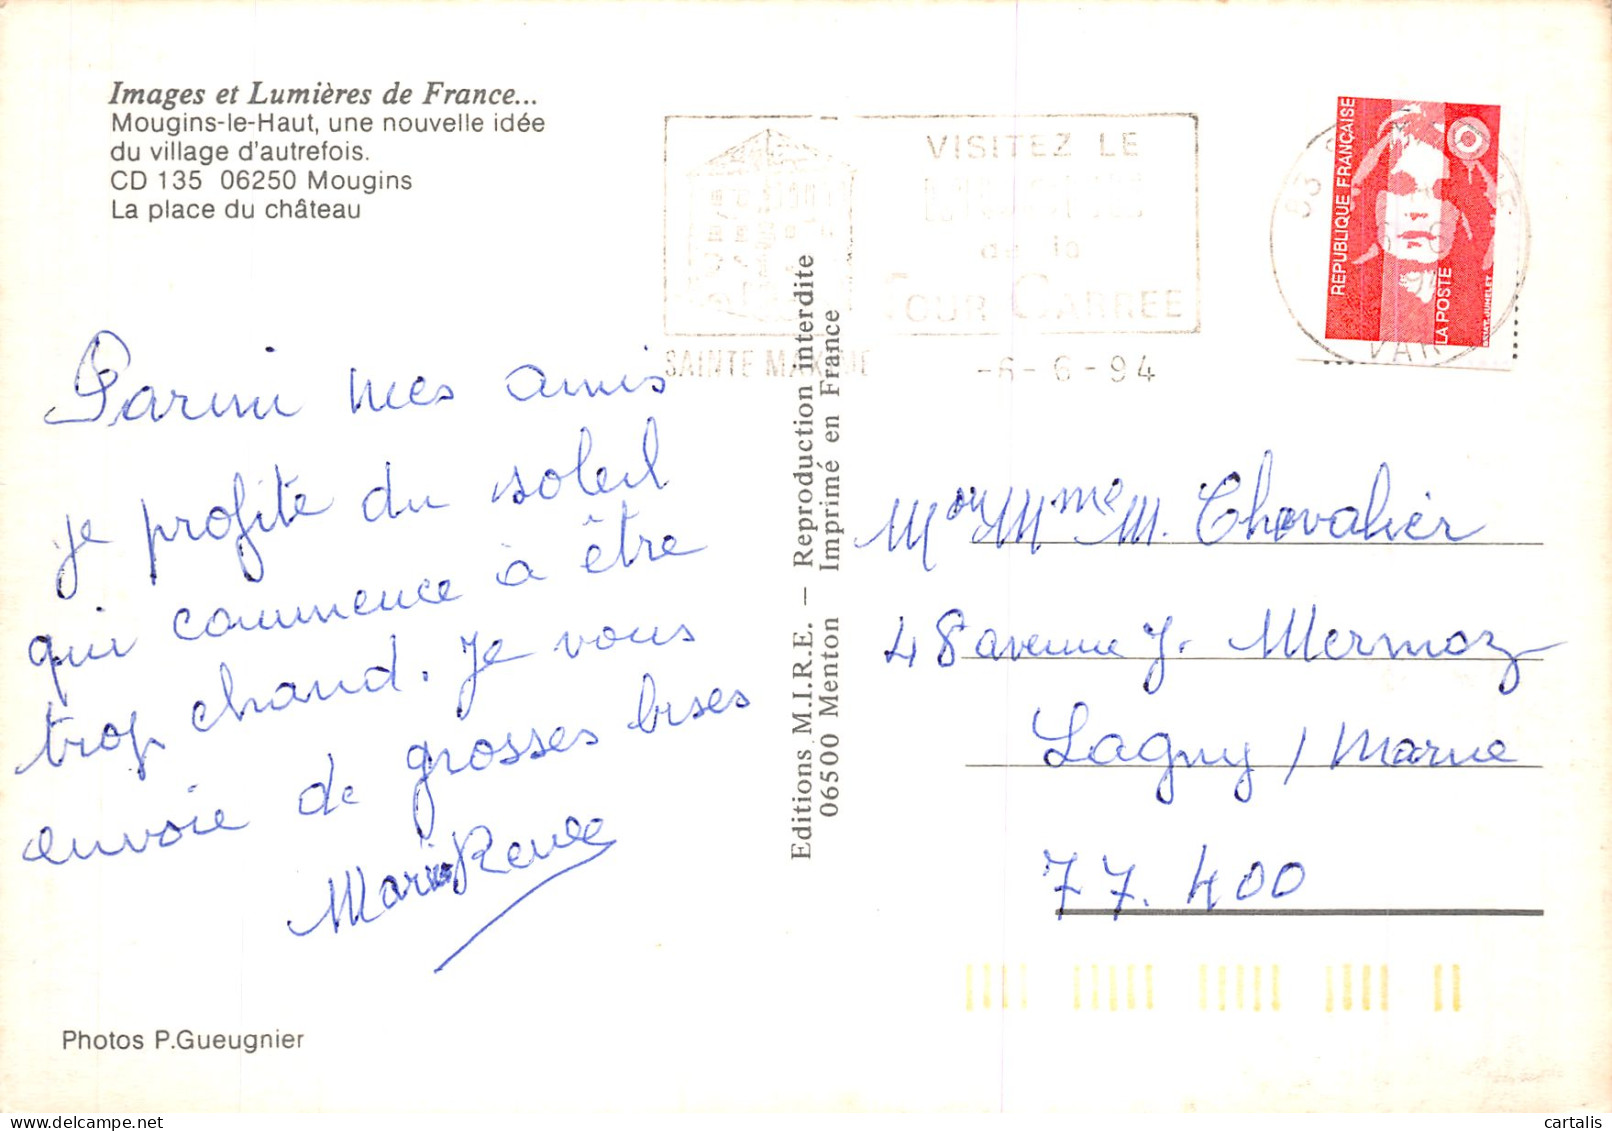 Images et Lumières de France...
Mougins-le-Haut, une nouvelle idée
du village d'autrefois.
CD 135 06250 Mougins
La place du château
VISITEZ LE
de la
TOUR CARREE
SAINTE MAXIME
-6-6-94
83
VAR
REPUBLIQUE FRANÇAISE
LA POSTE
Parmi mes amis
je profite du soleil
qui commence à être
trop chaud. Je vous
envoie de grosses bises
Marie Renée
Editions M.I.R.E. — Reproduction interdite
06500 Menton Imprimé en France
M ou Mme M. Chevalier
48 avenue J. Mermoz
Lagny / Marne
77.400
Photos P.Gueugnier
cartalis